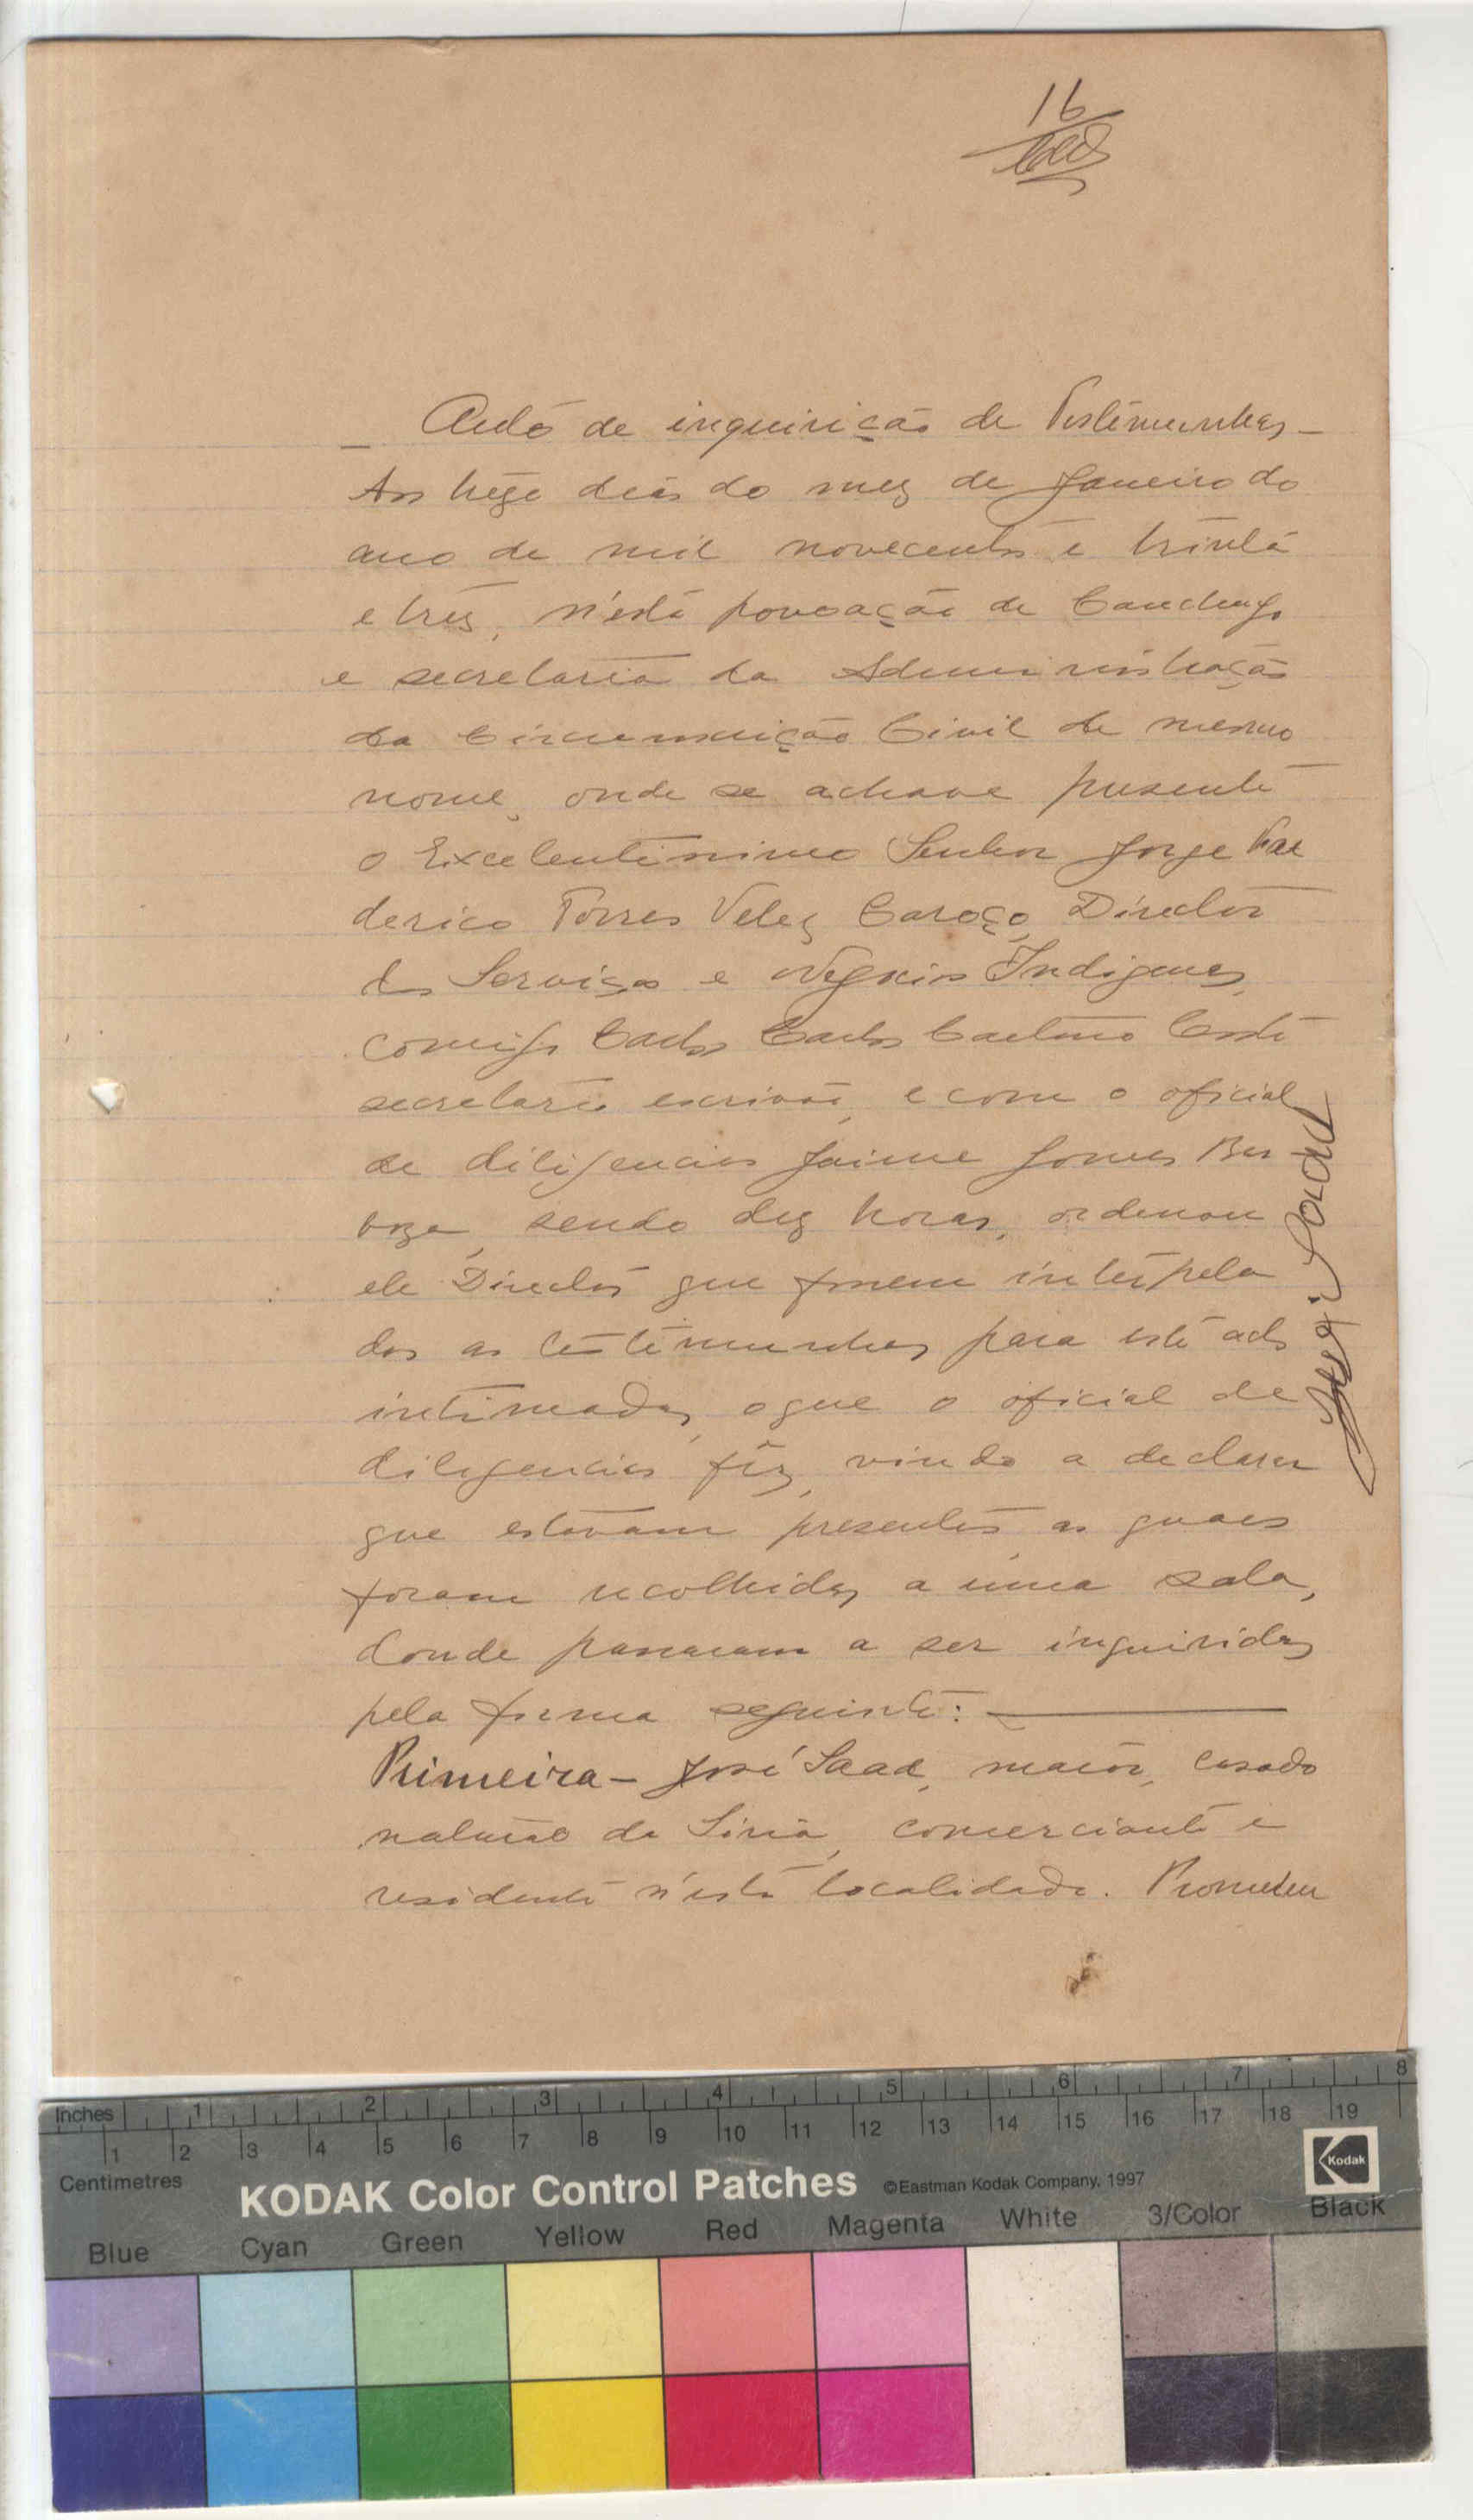 16
Auto de inquirição de Testemunhas –
Aos treze dias do mez de Janeiro do
ano de mil novecentos e trinta
e trez, n'esta povoação de Canchungo
e secretaria da Administração
da Circunscrição Civil de mesmo
nome, onde se achava presente
o Excelentissimo Senhor Jorge Fre
derico Torres Velez Caroço, Director
dos Serviços e Negocios Indigenas,
comigo Carlos Carlos Caetano Costa
secretario escrivão, e com o oficial
de diligencias Jaime Gomes Bar
boza, sendo dez horas, ordenou
ele Director que fossem interpela
dos as testemunhas para este acto
intimadas, o que o oficial de
diligencias fêz, vindo a declarar
que estavam presentes, as quaes
foram recolhidas a uma sala,
donde passaram a ser inquiridas
pela forma seguinte:
Primeira – José Saad, maior, casado
natural da Siria, comerciante e
residente n'esta localidade. Prometeu
José Saad
Inches 1 2 3 4 5 6 7 8
1 2 3 4 5 6 7 8 9 10 11 12 13 14 15 16 17 18 19
Centimetres
KODAK Color Control Patches ©Eastman Kodak Company, 1997 Kodak
Blue Cyan Green Yellow Red Magenta White 3/Color Black